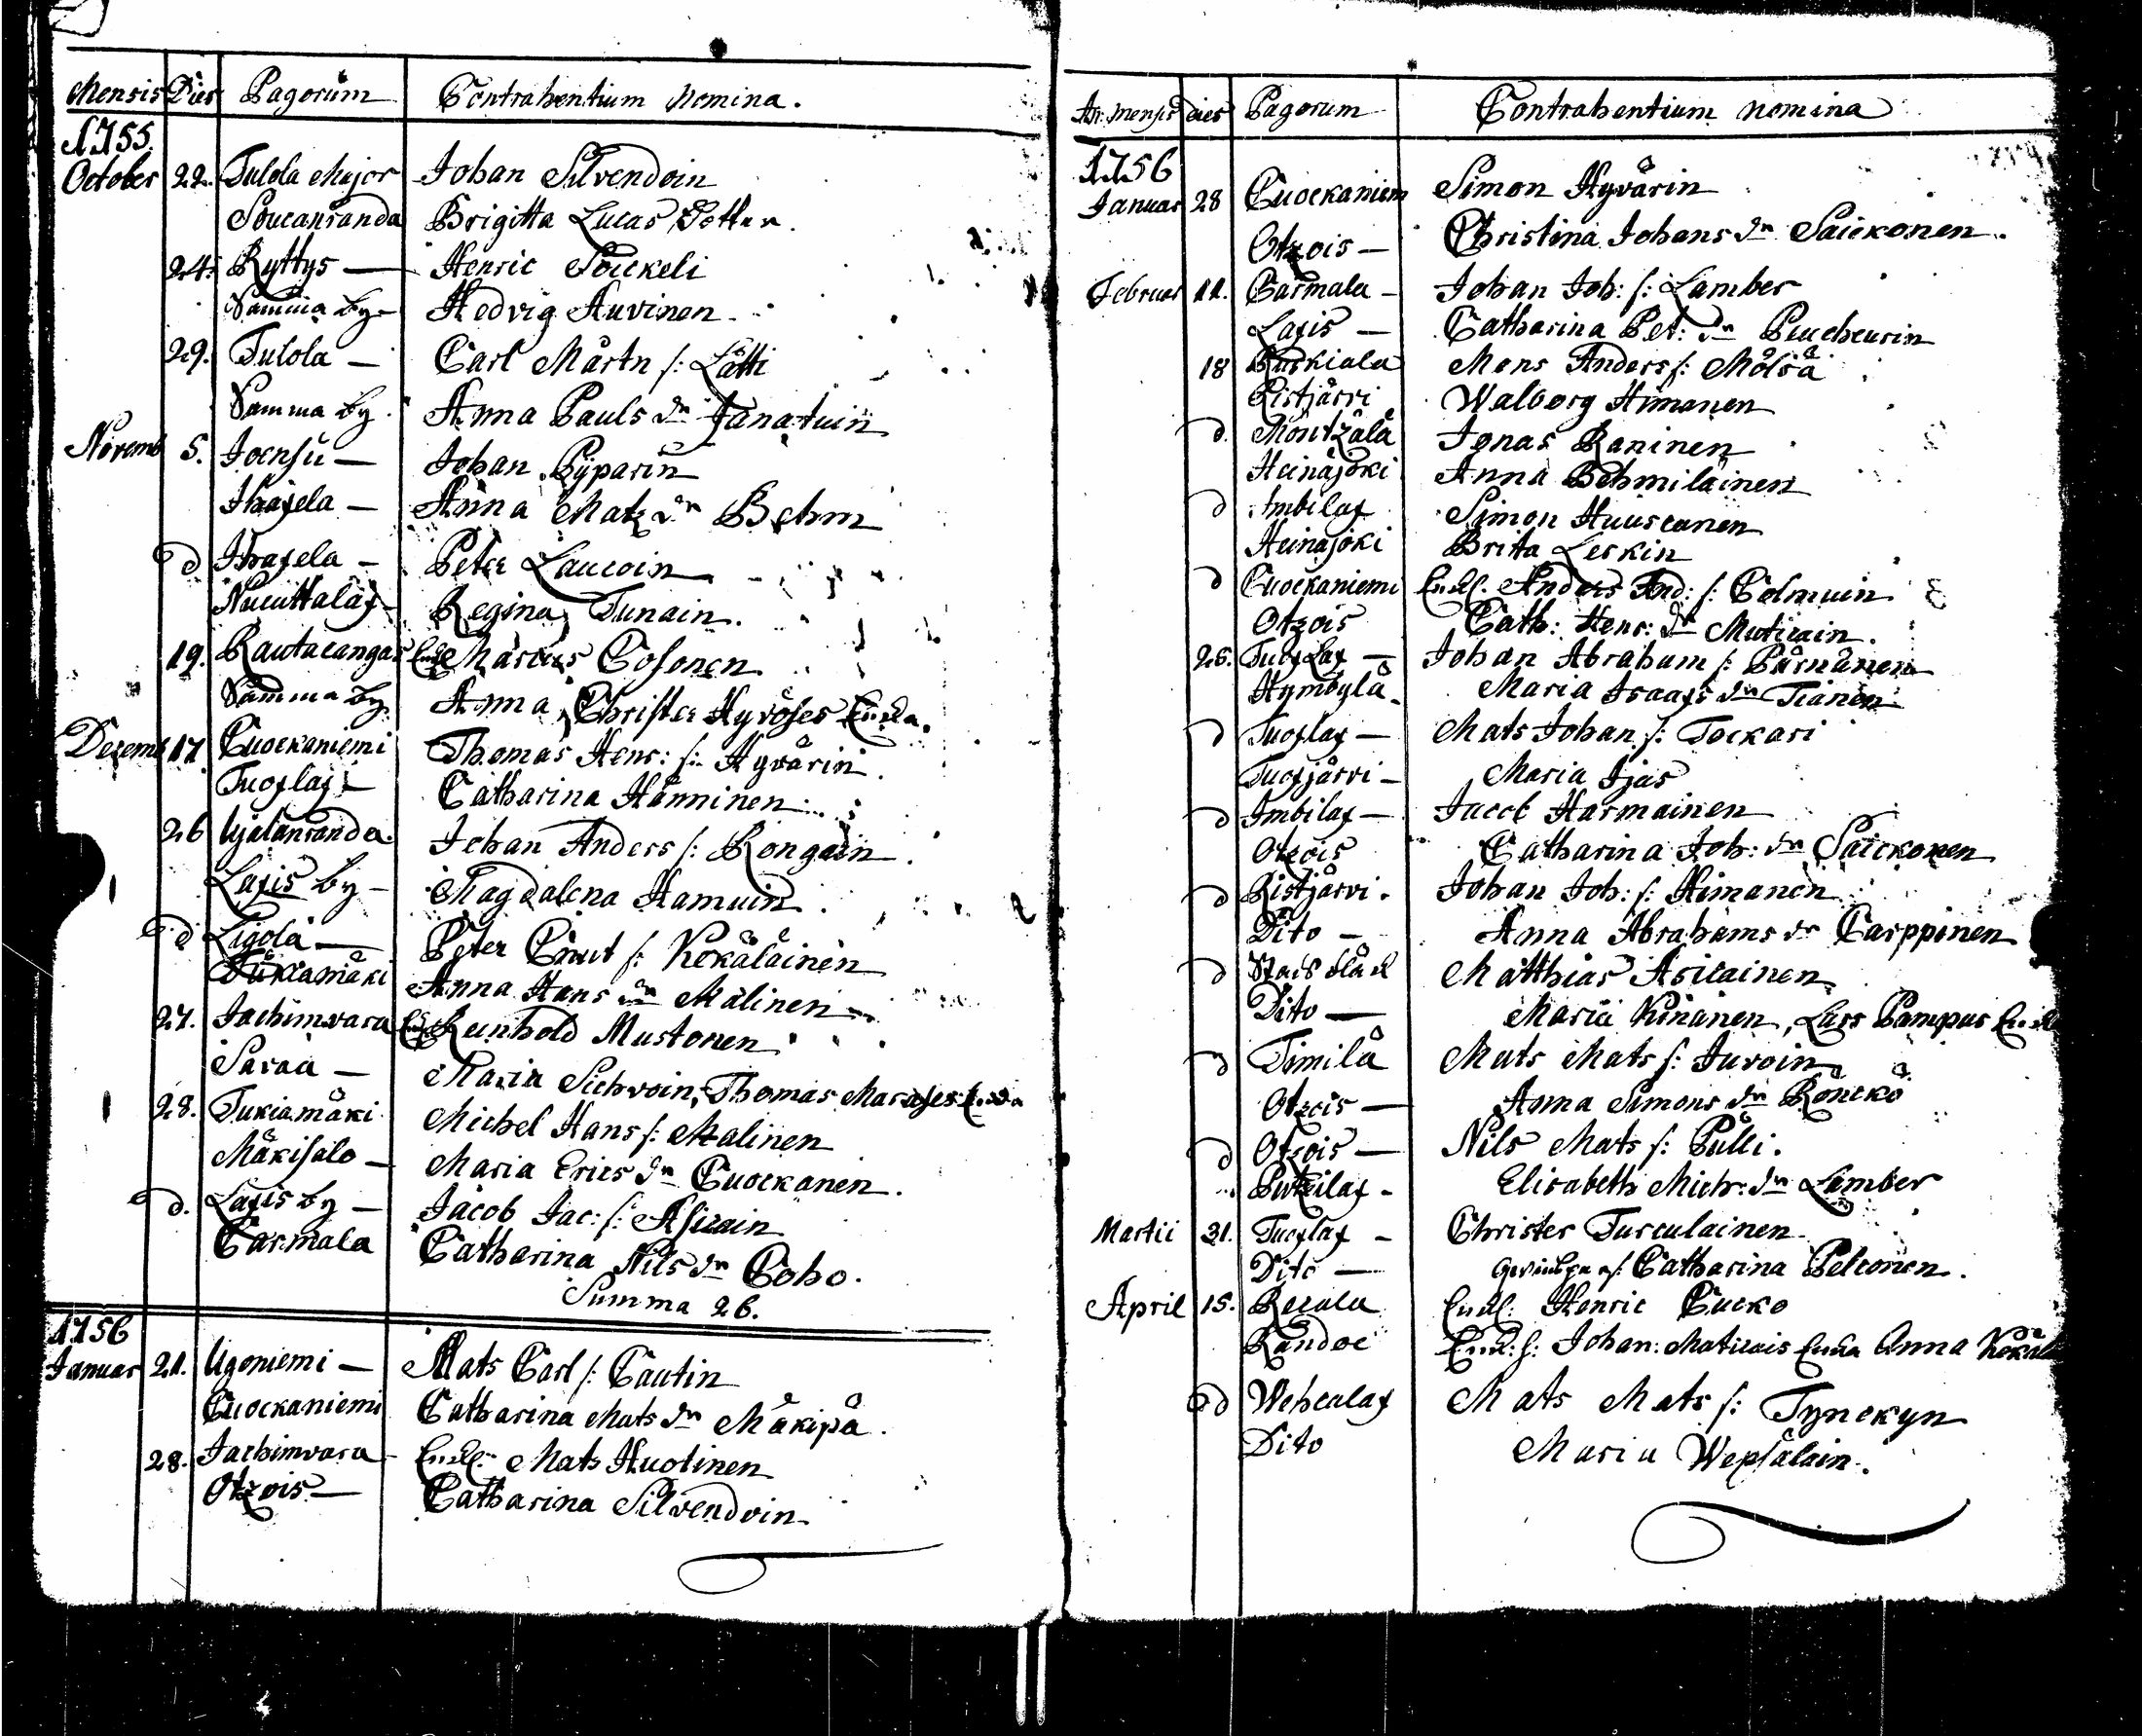 Mensis Dies Pagorum Contrahentium Nomina.
1755.
October 22. Tulola Major Johan Silvendoin
Soucanranda Brigitta Lucas Dotter.
24. Ryttys — Henric Poickeli
Samma by — Hedvig Auvinen
29. Tulola — Carl Mårtn s: Lätti
Samma by. Anna Pauls dr Janatuin
Novemb 5. Joensu — Johan Pyparin
Ihaxela — Anna Matz dr Behm
d Ihaxela — Peter Laucoin
Regina Tunain.
19. Rautacangas Marcus Cosonen
Samma by Anna, Christer Hyvöses
Dezemb 17 Cuockaniemi Thomas Henr: s: Hyvärin
Tuoslax — Catharina Hänninen
26 Ujalanranda Johan Anders s: Rongain
Laxis by — Magdalena Hamuin
d Ligola — Peter Cnut s: Kokäläinen
Tukiamäki Anna Hans dr Malinen
27. Jachimvara Reinhold Mustonen
Saraa — Maria Sichvoin, Thomas
28. Tukiamäki Michel Hans s: Malinen
Mäkisalo — Maria Erics dr Cuockanen.
d. Laxis by — Jacob Jac: s: Asicain
Carmala Catharina Nils dr Coho.
Summa 26.
1756
Januar 21. Ugoniemi — Mats Carl s: Cautin
Cuockaniemi Catharina Mats dr Mäkipä.
28. Jachimvara Mats Huotinen
Otzois — Catharina Silvendoin
An: Mensis dies Pagorum Contrahentium Nomina
1756
Januar 28 Cuockaniem Simon Hyvärin
Otzois — Christina Johans dr Paickonen.
Februar 11. Carmala — Johan Joh: s: Lamber
Laxis — Catharina Pet: dr Peucheurin
18 Puskiala Mons Anders s: Mölsä
Ristjärvi Walborg Himanen
d. Montzälä Jonas Raninen
Heinäjoki Anna Behmiläinen
d Imbilax Simon Huuscanen
Heinäjoki Brita Leskin
d Cuockaniemi Anders And: s: Colmuin
Otzois Cath: Henr: dr Muticain.
26. Tuoslax — Johan Abraham s: Pärnänen
Hymbylä — Maria Isaacs dr Tianen
d Tuoslax — Mats Johan s: Tockari
Tuosjärvi — Maria Ijas
d Imbilax — Jacob Harmainen
Otzois Catharina Joh: dr Paickonen
d Ristjärvi. Johan Joh: s: Himanen
Dito — Anna Abrahams dr Carppinen
d Matthias Asicainen
Dito — Maria Kinanen, Lars Pampas
d Timilä Mats Mats s: Juvoin
Otzois — Anna Simons dr Röncko
d Otzois — Nils Mats s: Pulli.
Putzilax — Elisabeth Mich: dr Lamber
Martii 31. Tuoslax — Christer Turculainen
Dito — Catharina Peltonen.
April 15. Recala Henric Cucko
Randoe Johan: Anna
d Wehcalax Mats Mats s: Tynckyn
Dito Maria Wepsälain.